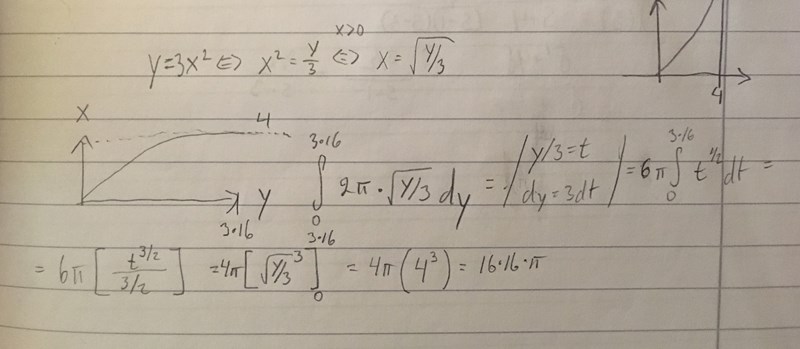 y=3x² ⇔ x² = y/3 ⇔ x>0 x = √(y/3)
4
x
4
y
3·16
∫₀^(3·16) 2π · √(y/3) dy = / y/3 = t dy = 3dt / = 6π ∫₀^(3·16) t^(1/2) dt =
= 6π [ t^(3/2) / (3/2) ] = 4π [ √(y/3)³ ]₀^(3·16) = 4π (4³) = 16·16·π